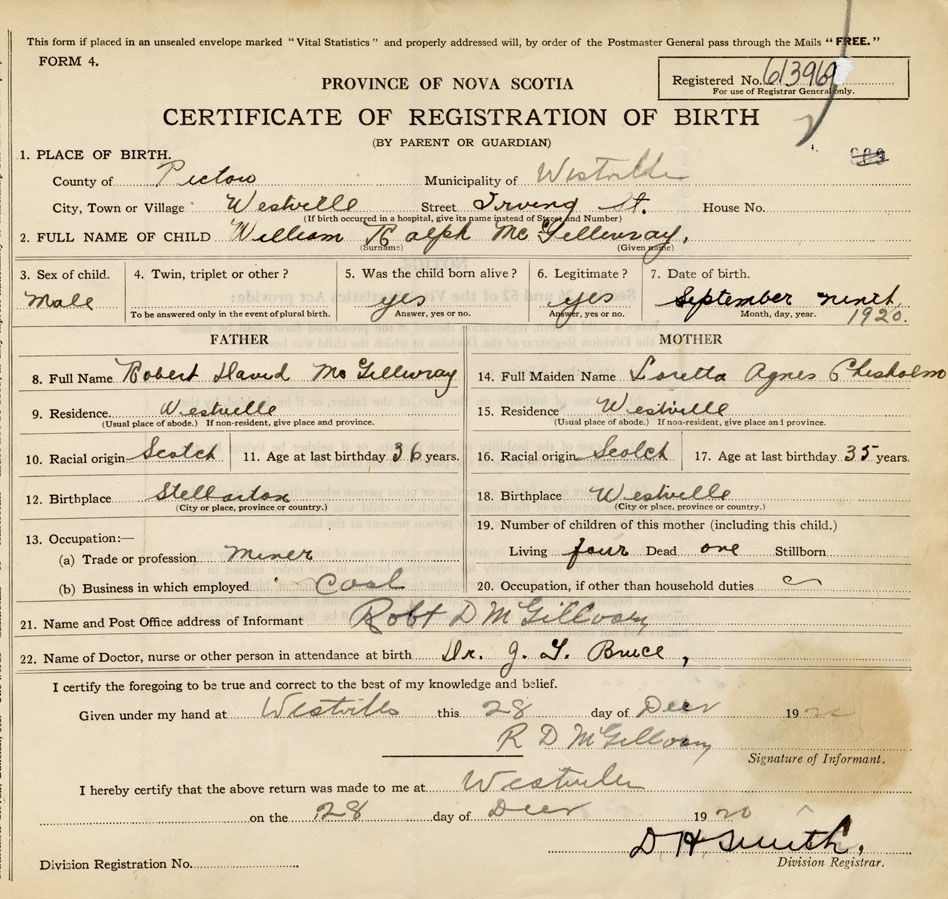 This form if placed in an unsealed envelope marked "Vital Statistics" and properly addressed will, by order of the Postmaster General pass through the Mails "FREE."
FORM 4.
Registered No. 613969
For use of Registrar General only.
PROVINCE OF NOVA SCOTIA
CERTIFICATE OF REGISTRATION OF BIRTH
(BY PARENT OR GUARDIAN)
1. PLACE OF BIRTH.
County of Pictou Municipality of Westville
City, Town or Village Westville Street Irving St. House No.
(If birth occurred in a hospital, give its name instead of Street and Number)
2. FULL NAME OF CHILD William Ralph McGillivray,
(Surname) (Given name)
3. Sex of child. 4. Twin, triplet or other? 5. Was the child born alive? 6. Legitimate? 7. Date of birth.
Male yes yes September ninth
To be answered only in the event of plural birth. Answer, yes or no. Answer, yes or no. Month, day, year. 1920.
FATHER MOTHER
8. Full Name Robert David McGillivray 14. Full Maiden Name Loretta Agnes Chisholm
9. Residence Westville 15. Residence Westville
(Usual place of abode.) If non-resident, give place and province. (Usual place of abode.) If non-resident, give place and province.
10. Racial origin Scotch 11. Age at last birthday 36 years. 16. Racial origin Scotch 17. Age at last birthday 35 years.
12. Birthplace Stellarton 18. Birthplace Westville
(City or place, province or country.) (City or place, province or country.)
13. Occupation:— 19. Number of children of this mother (including this child.)
(a) Trade or profession miner Living four Dead one Stillborn
(b) Business in which employed Coal 20. Occupation, if other than household duties
21. Name and Post Office address of Informant Robt D McGillvary
22. Name of Doctor, nurse or other person in attendance at birth Dr. J. Bruce,
I certify the foregoing to be true and correct to the best of my knowledge and belief.
Given under my hand at Westville this 28 day of Decr 1920
R D McGillvary
Signature of Informant.
I hereby certify that the above return was made to me at Westville
on the 28 day of Decr 1920
D H Smith.
Division Registration No. Division Registrar.